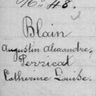 No 48.
Blain
Augustin Alexandre,
Perrical
Catherine Louise.